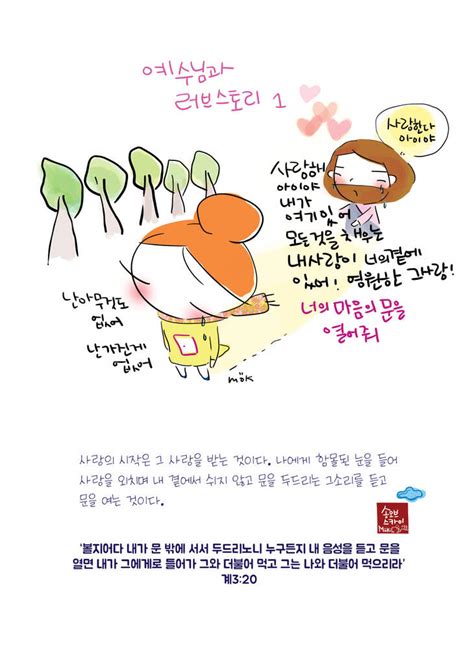 예수님과
러브스토리 1
사랑한다
아이야
사랑해
아이야
내가
여기있어
모든것을 채우는
내사랑이 너의곁에
있어! 영원한 그사랑!
너의 마음의 문을
열어줘
난아무것도
없어
난가진게
없어
mok
사랑의 시작은 그 사랑을 받는 것이다. 나에게 함몰된 눈을 들어
사랑을 외치며 내 곁에서 쉬지 않고 문을 두드리는 그소리를 듣고
문을 여는 것이다.
'볼지어다 내가 문 밖에 서서 두드리노니 누구든지 내 음성을 듣고 문을
열면 내가 그에게로 들어가 그와 더불어 먹고 그는 나와 더불어 먹으리라'
계3:20